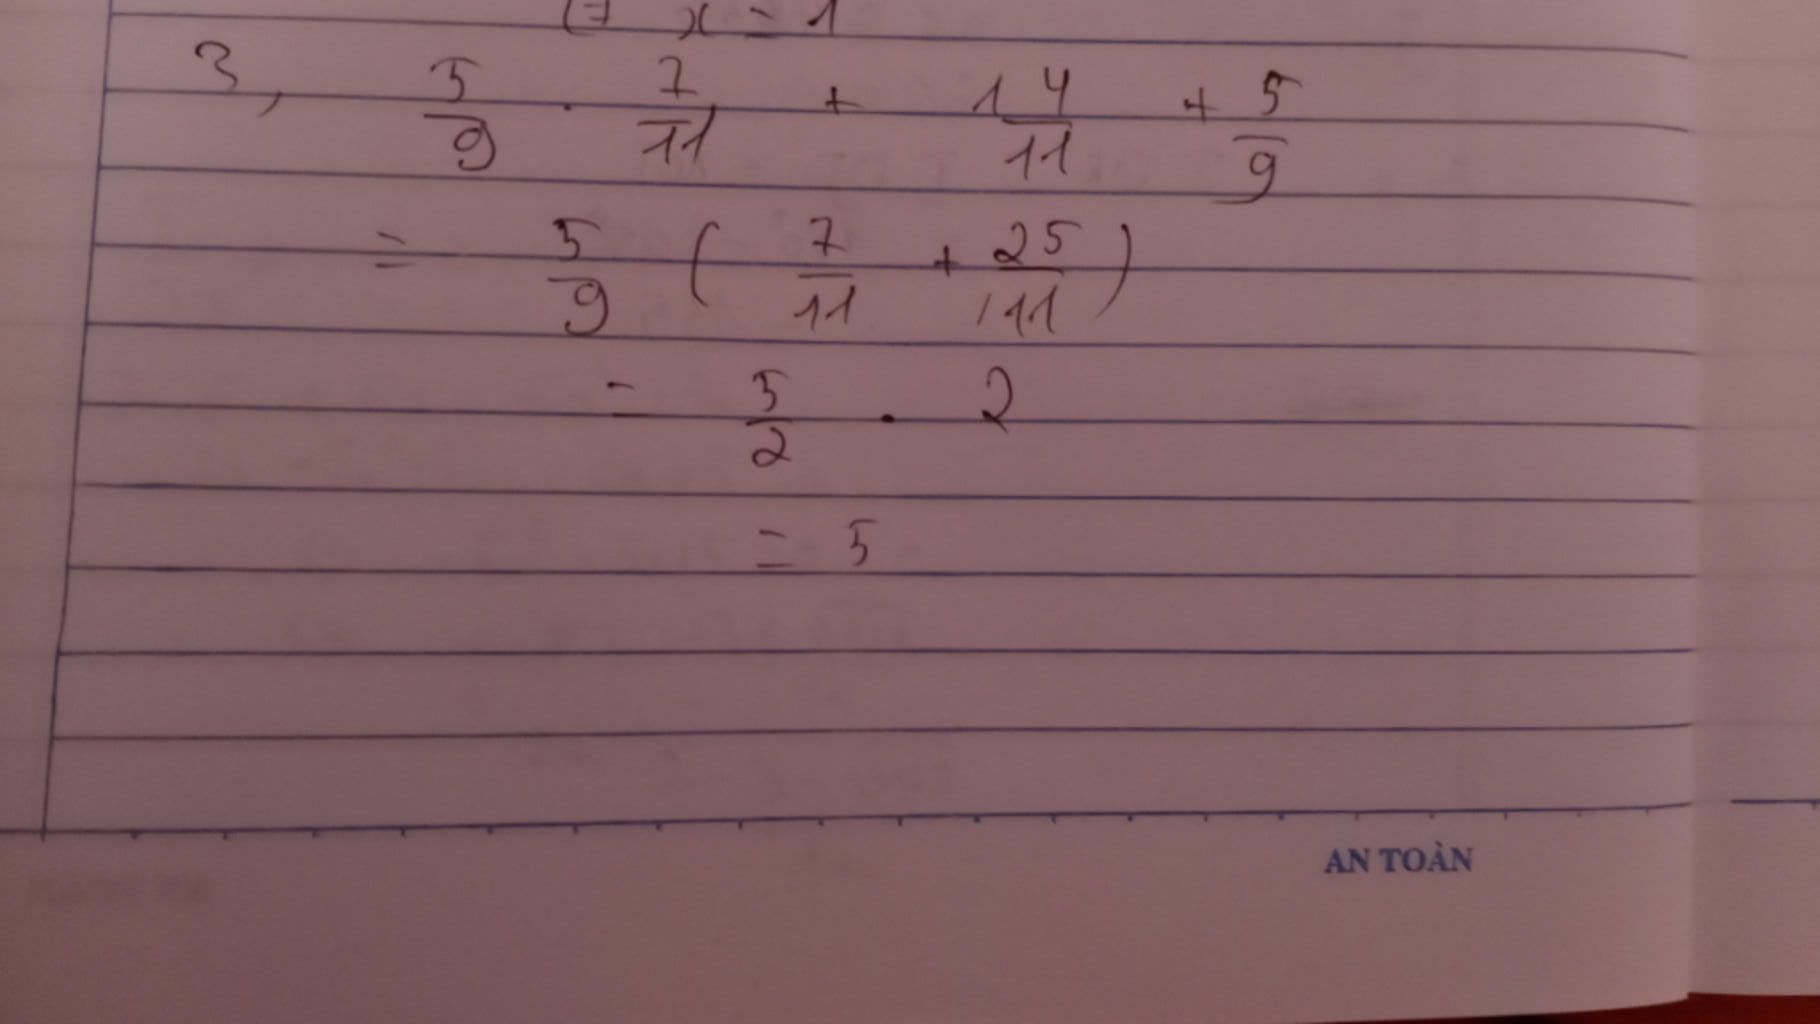 7 x = 1
3, 5/9 . 7/11 + 1 4/11 + 5/9
= 5/9 ( 7/11 + 25/11 )
= 5/2 . 2
= 5
AN TOÀN